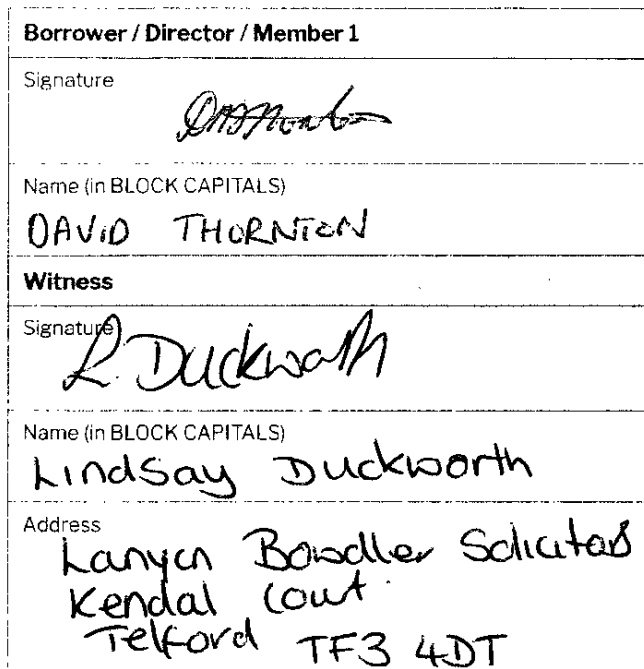 Borrower / Director / Member 1
Signature
Name (in BLOCK CAPITALS)
DAVID THORNTON
Witness
Signature
L. Duckworth
Name (in BLOCK CAPITALS)
Lindsay Duckworth
Address
Lanyon Bowdler Solicitors
Kendal Court
Telford TF3 4DT